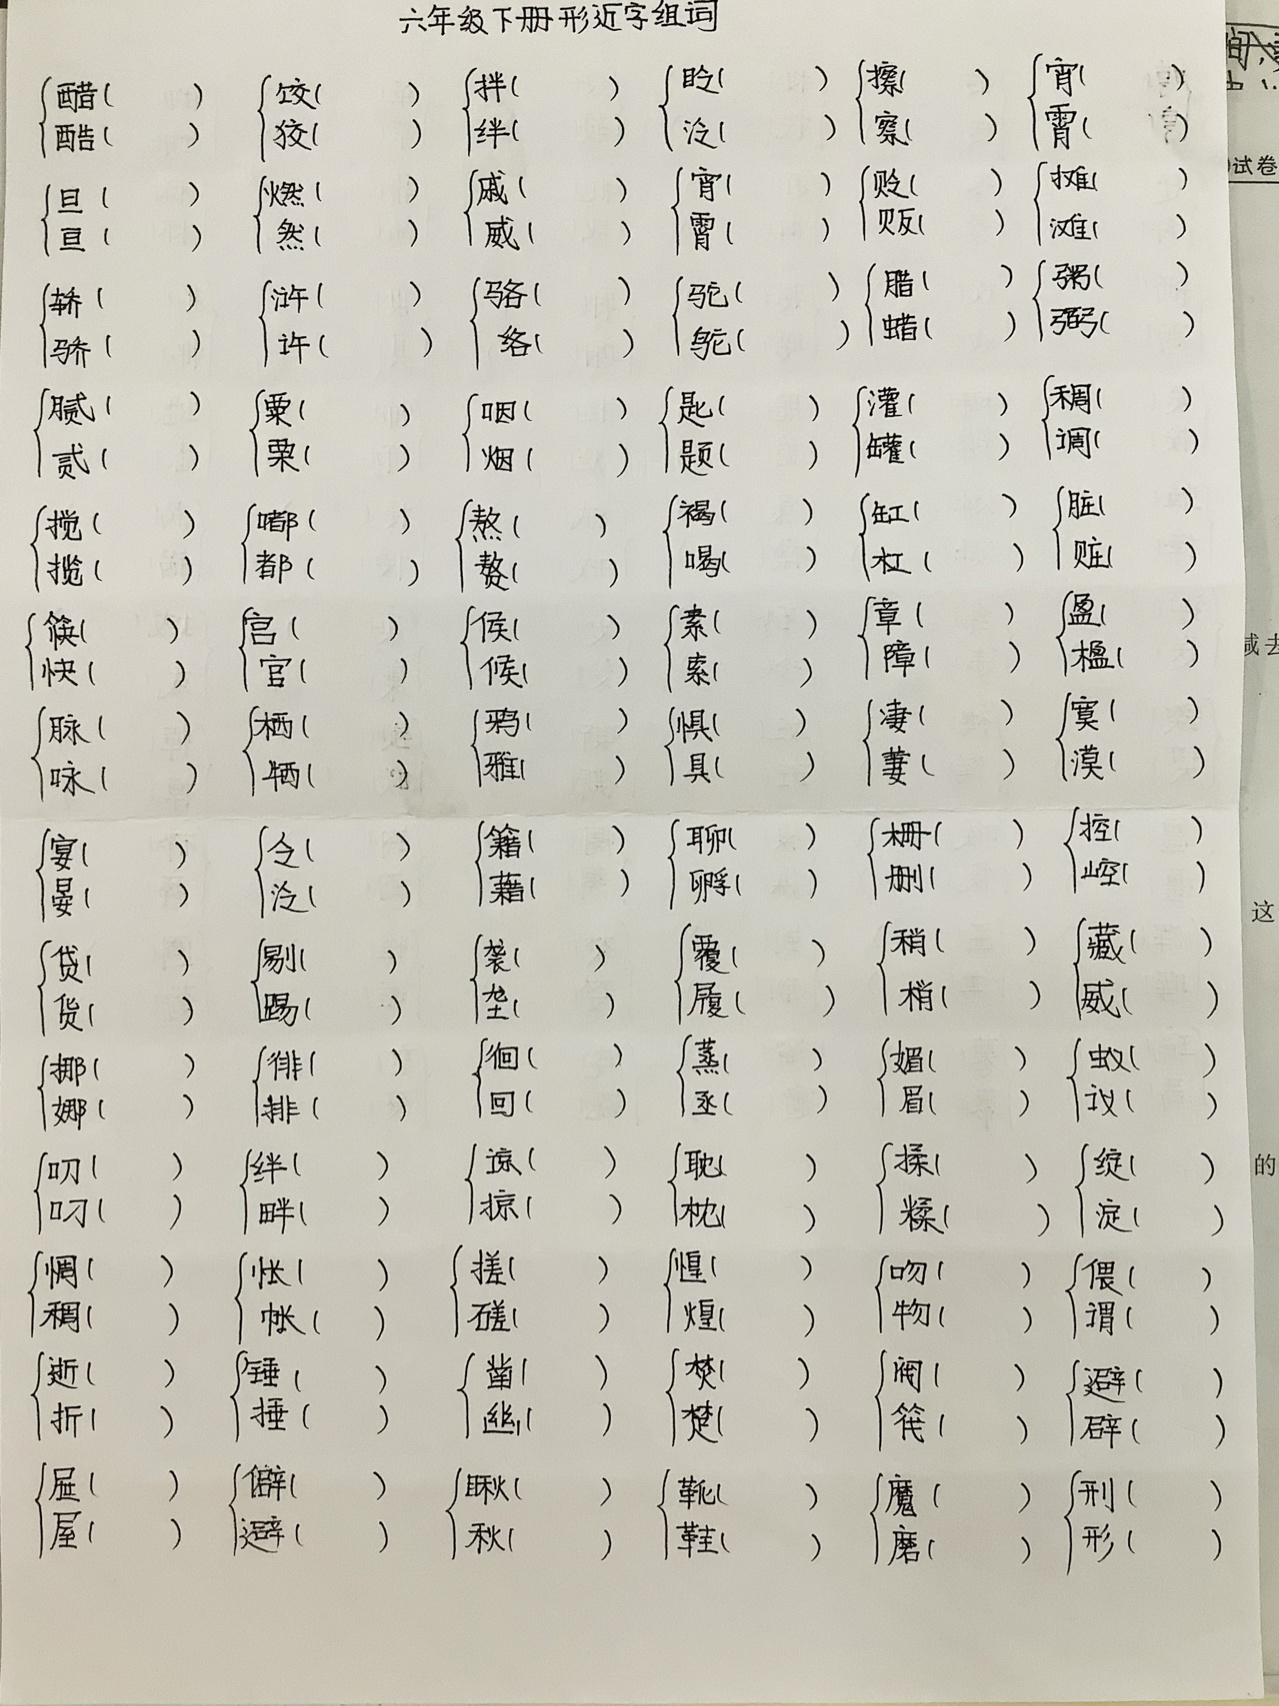 六年级下册形近字组词
醋( ) 饺( ) 拌( ) 眨( ) 擦( ) 宵( )
酷( ) 狡( ) 绊( ) 泛( ) 察( ) 霄( )
旦( ) 燃( ) 戚( ) 宵( ) 贬( ) 摊( )
亘( ) 然( ) 威( ) 霄( ) 贩( ) 滩( )
轿( ) 浒( ) 骆( ) 驼( ) 腊( ) 粥( )
骄( ) 许( ) 络( ) 鸵( ) 蜡( ) 弼( )
腻( ) 粟( ) 咽( ) 匙( ) 灌( ) 稠( )
贰( ) 栗( ) 烟( ) 题( ) 罐( ) 调( )
搅( ) 嘟( ) 熬( ) 褐( ) 缸( ) 脏( )
揽( ) 都( ) 赘( ) 喝( ) 杠( ) 赃( )
筷( ) 宫( ) 侯( ) 素( ) 章( ) 盈( )
快( ) 官( ) 候( ) 索( ) 障( ) 楹( )
脉( ) 栖( ) 鸦( ) 惧( ) 凄( ) 寞( )
咏( ) 牺( ) 雅( ) 具( ) 萋( ) 漠( )
宴( ) 仑( ) 籍( ) 聊( ) 栅( ) 控( )
晏( ) 沦( ) 藉( ) 孵( ) 删( ) 崆( )
贷( ) 剔( ) 袭( ) 覆( ) 稍( ) 藏( )
货( ) 踢( ) 垄( ) 履( ) 梢( ) 臧( )
挪( ) 徘( ) 徊( ) 蒸( ) 媚( ) 蚁( )
娜( ) 排( ) 回( ) 丞( ) 眉( ) 议( )
叨( ) 绊( ) 谅( ) 耽( ) 揉( ) 绽( )
叼( ) 畔( ) 掠( ) 枕( ) 糅( ) 淀( )
惆( ) 怅( ) 搓( ) 惶( ) 吻( ) 偎( )
稠( ) 帐( ) 磋( ) 煌( ) 物( ) 谓( )
逝( ) 锤( ) 凿( ) 焚( ) 阀( ) 避( )
折( ) 捶( ) 幽( ) 楚( ) 筏( ) 辟( )
屉( ) 僻( ) 瞅( ) 靴( ) 魔( ) 刑( )
屋( ) 避( ) 秋( ) 鞋( ) 磨( ) 形( )
试卷
减去
这
的